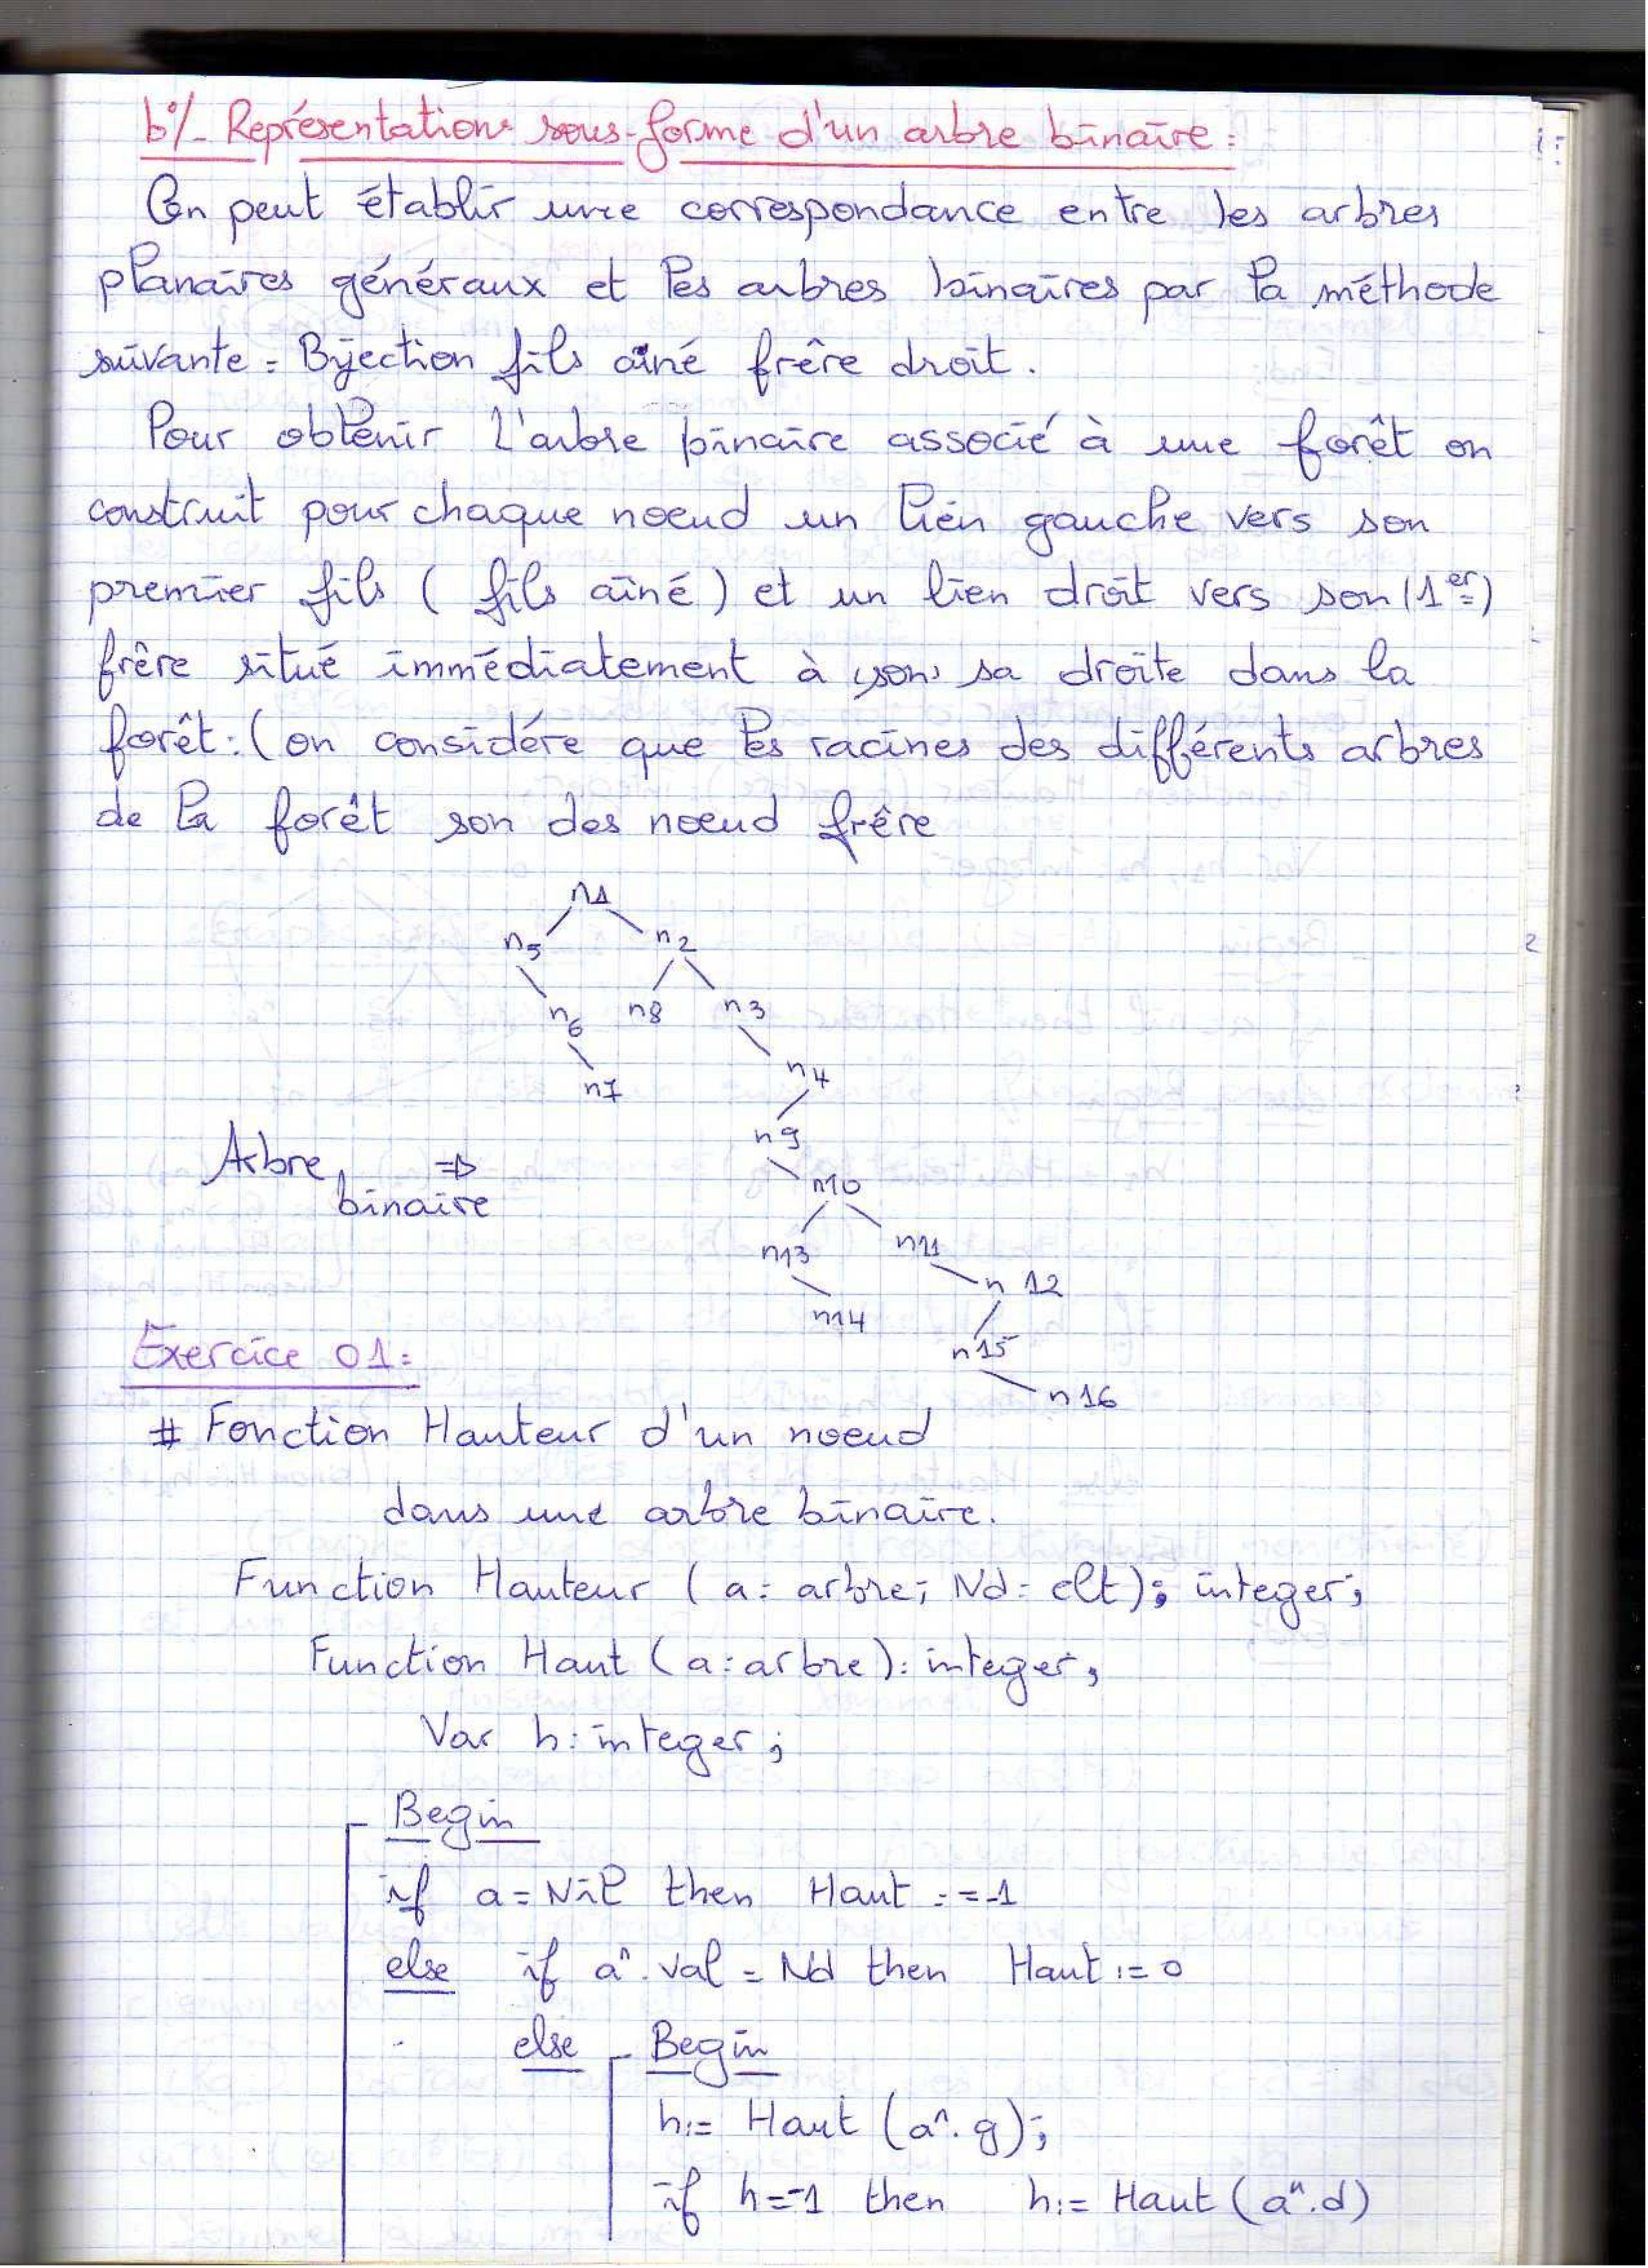 b°/- Représentations sous-forme d'un arbre binaire:
On peut établir une correspondance entre les arbres
planaires généraux et les arbres binaires par la méthode
suivante: Bijection fils aîné frêre droit.
Pour obtenir l'arbre binaire associé à une forêt on
construit pour chaque noeud un lien gauche vers son
premier fils ( fils aîné ) et un lien droit vers son (1er)
frêre situé immédiatement à (son) sa droite dans la
forêt: (on considére que les racines des différents arbres
de la forêt son des noeud frêre
n1
n5 n2
n6 n8 n3
n7 n4
n9
Arbre binaire ⇒
n10
n13 n11
n14 n12
n15
n16
Exercice 01:
# Fonction Hauteur d'un noeud
dans une arbre binaire.
Function Hauteur ( a: arbre; Nd: elt); integer;
Function Haut (a: arbre): integer;
Var h: integer;
Begin
if a = Nil then Haut := -1
else if a^.val = Nd then Haut := 0
else Begin
h:= Haut (a^.g);
if h=-1 then h:= Haut (a^.d)